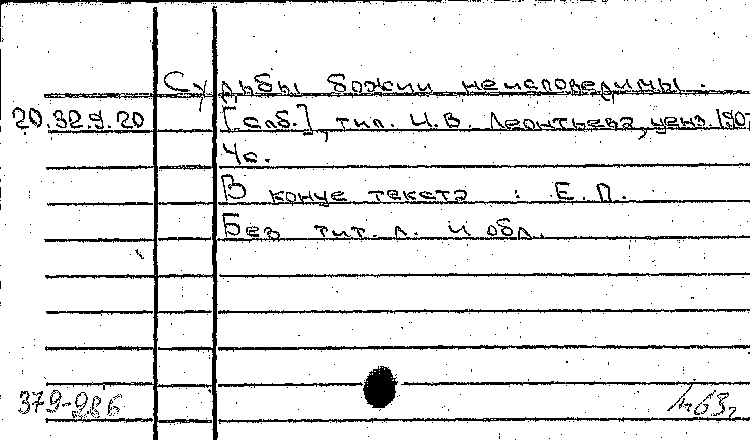 Судьбы божии неисповедимы.
20.32.9.20 [спб.], тип. И.В. Леонтьева, ценз. 1907
4с.
В конце текста : Е.П.
Без тит. л. и обл.
379-986